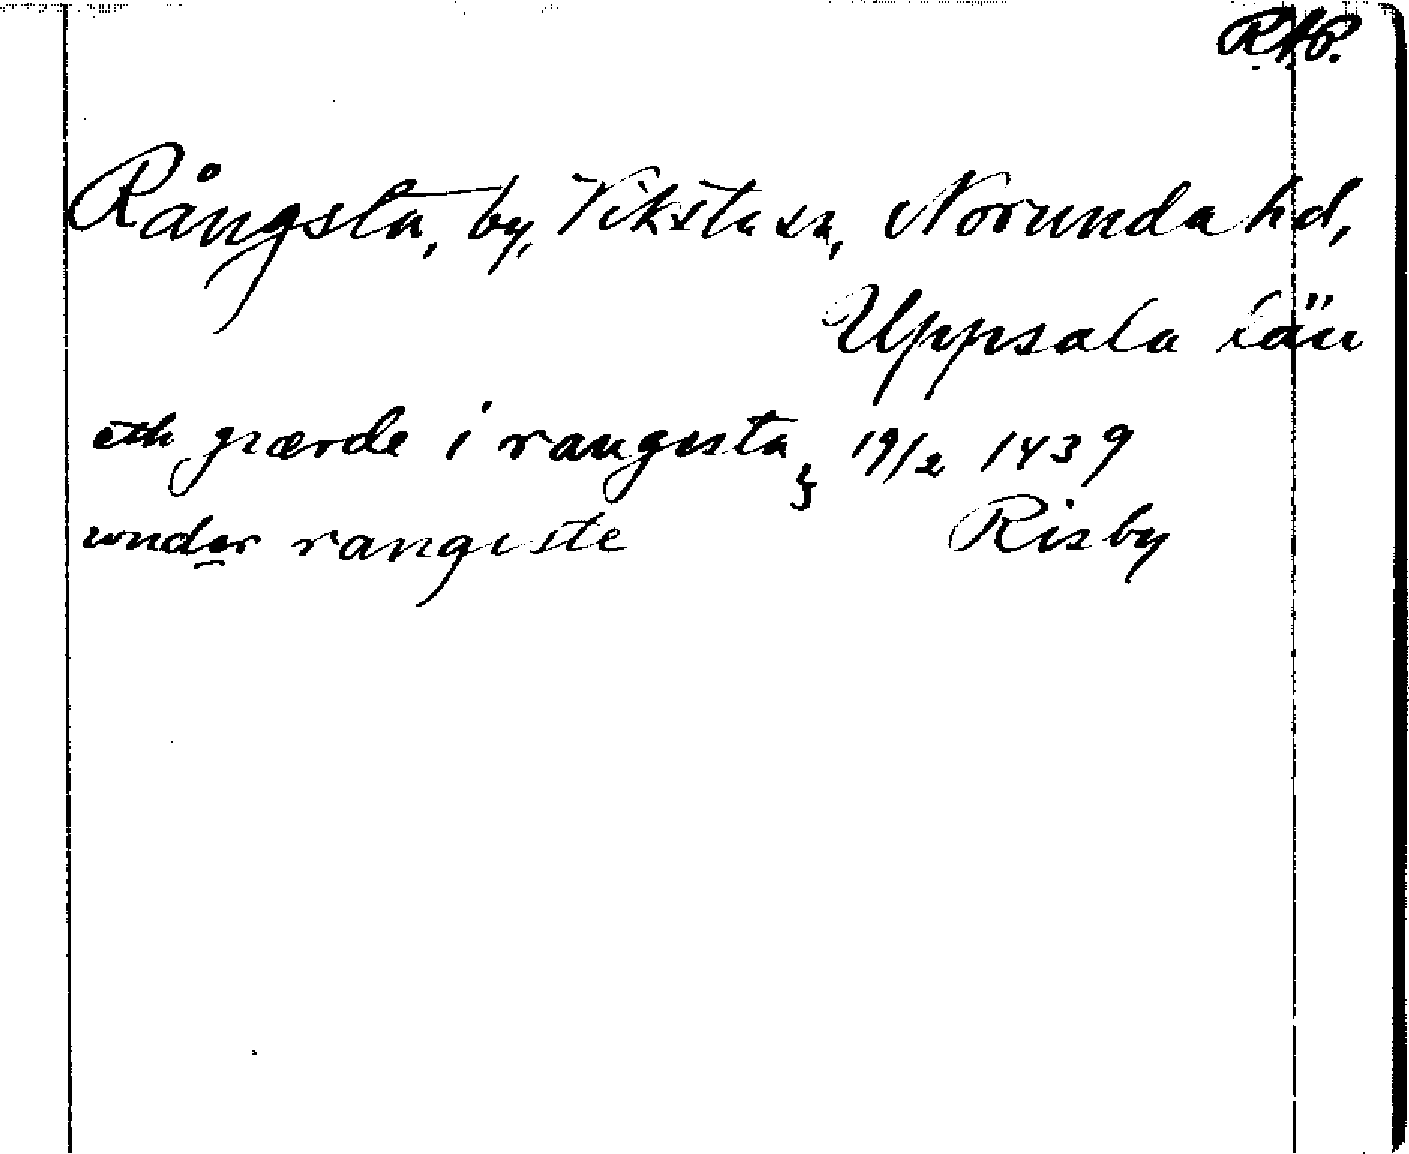 RAP.
Rångsta, by, Viksta sn, Norunda hd,
Uppsala län
eth gærde i rangista, 19/2 1439
under rangiste Risby